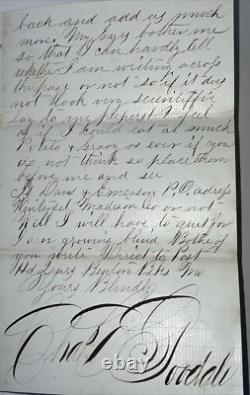 back and add as much
more. My eyes bother me
so that I can hardly tell
whether I am writing across
the page or not so if it does
not look very scientific
lay do my I feel
as if I could eat as much
Potato & Gravy as ever if you
do not think so place them
before me and see
Is Dans & Emerson P.O. adress
Winterset Madison Co or not
Well I will have to quit for
I am growing blind Both of
you write Direct to Post
Hd Qrs Benton Bks Mo
Yours Blindly
Goodale
© ebay